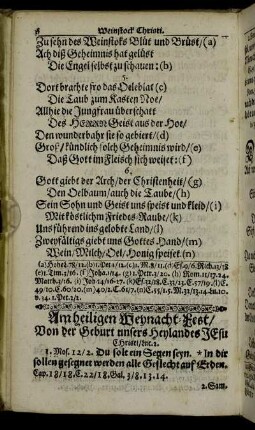 Weinstock Christi.
Zu sehn des Weinstoks Blüt und Brüst/(a)
Ach diß Geheimnis hat gelüst
Die Engel selbst zu schauen:(b)
5.
Dort brachte fro das Oeleblat(c)
Die Taub zum Kasten Noe/
Allhie die Jungfrau überschatt
Des HERREN Geist aus der Hoe/
Den wunderbahr sie so gebiert/(d)
Groß/kündlich solch Geheimnis wird/(e)
Daß Gott im Fleisch sich weiset:(f)
6.
Gott giebt der Arch/der Christenheit/(g)
Den Oelbaum/auch die Taube/(h)
Sein Sohn und Geist uns speist und kleid/(i)
Mit köstlichm Friedes-Raube/(k)
Uns führend ins gelobte Land/(l)
Zweyfältigs giebt uns Gottes-Hand/(m)
Wein/Milch/Oel/Honig speiset(n)
Am heiligen Weynacht-Fest/
Von der Geburt unsers Heylandes JEsu
Christi/
1. Mos. 12/2. Du solt ein Segen seyn. * In dir
sollen gesegnet werden alle Geslecht auf Erden.
Cap. 18/18. C. 22/18. Gal. 3/8. 13. 14.
2. Sam.